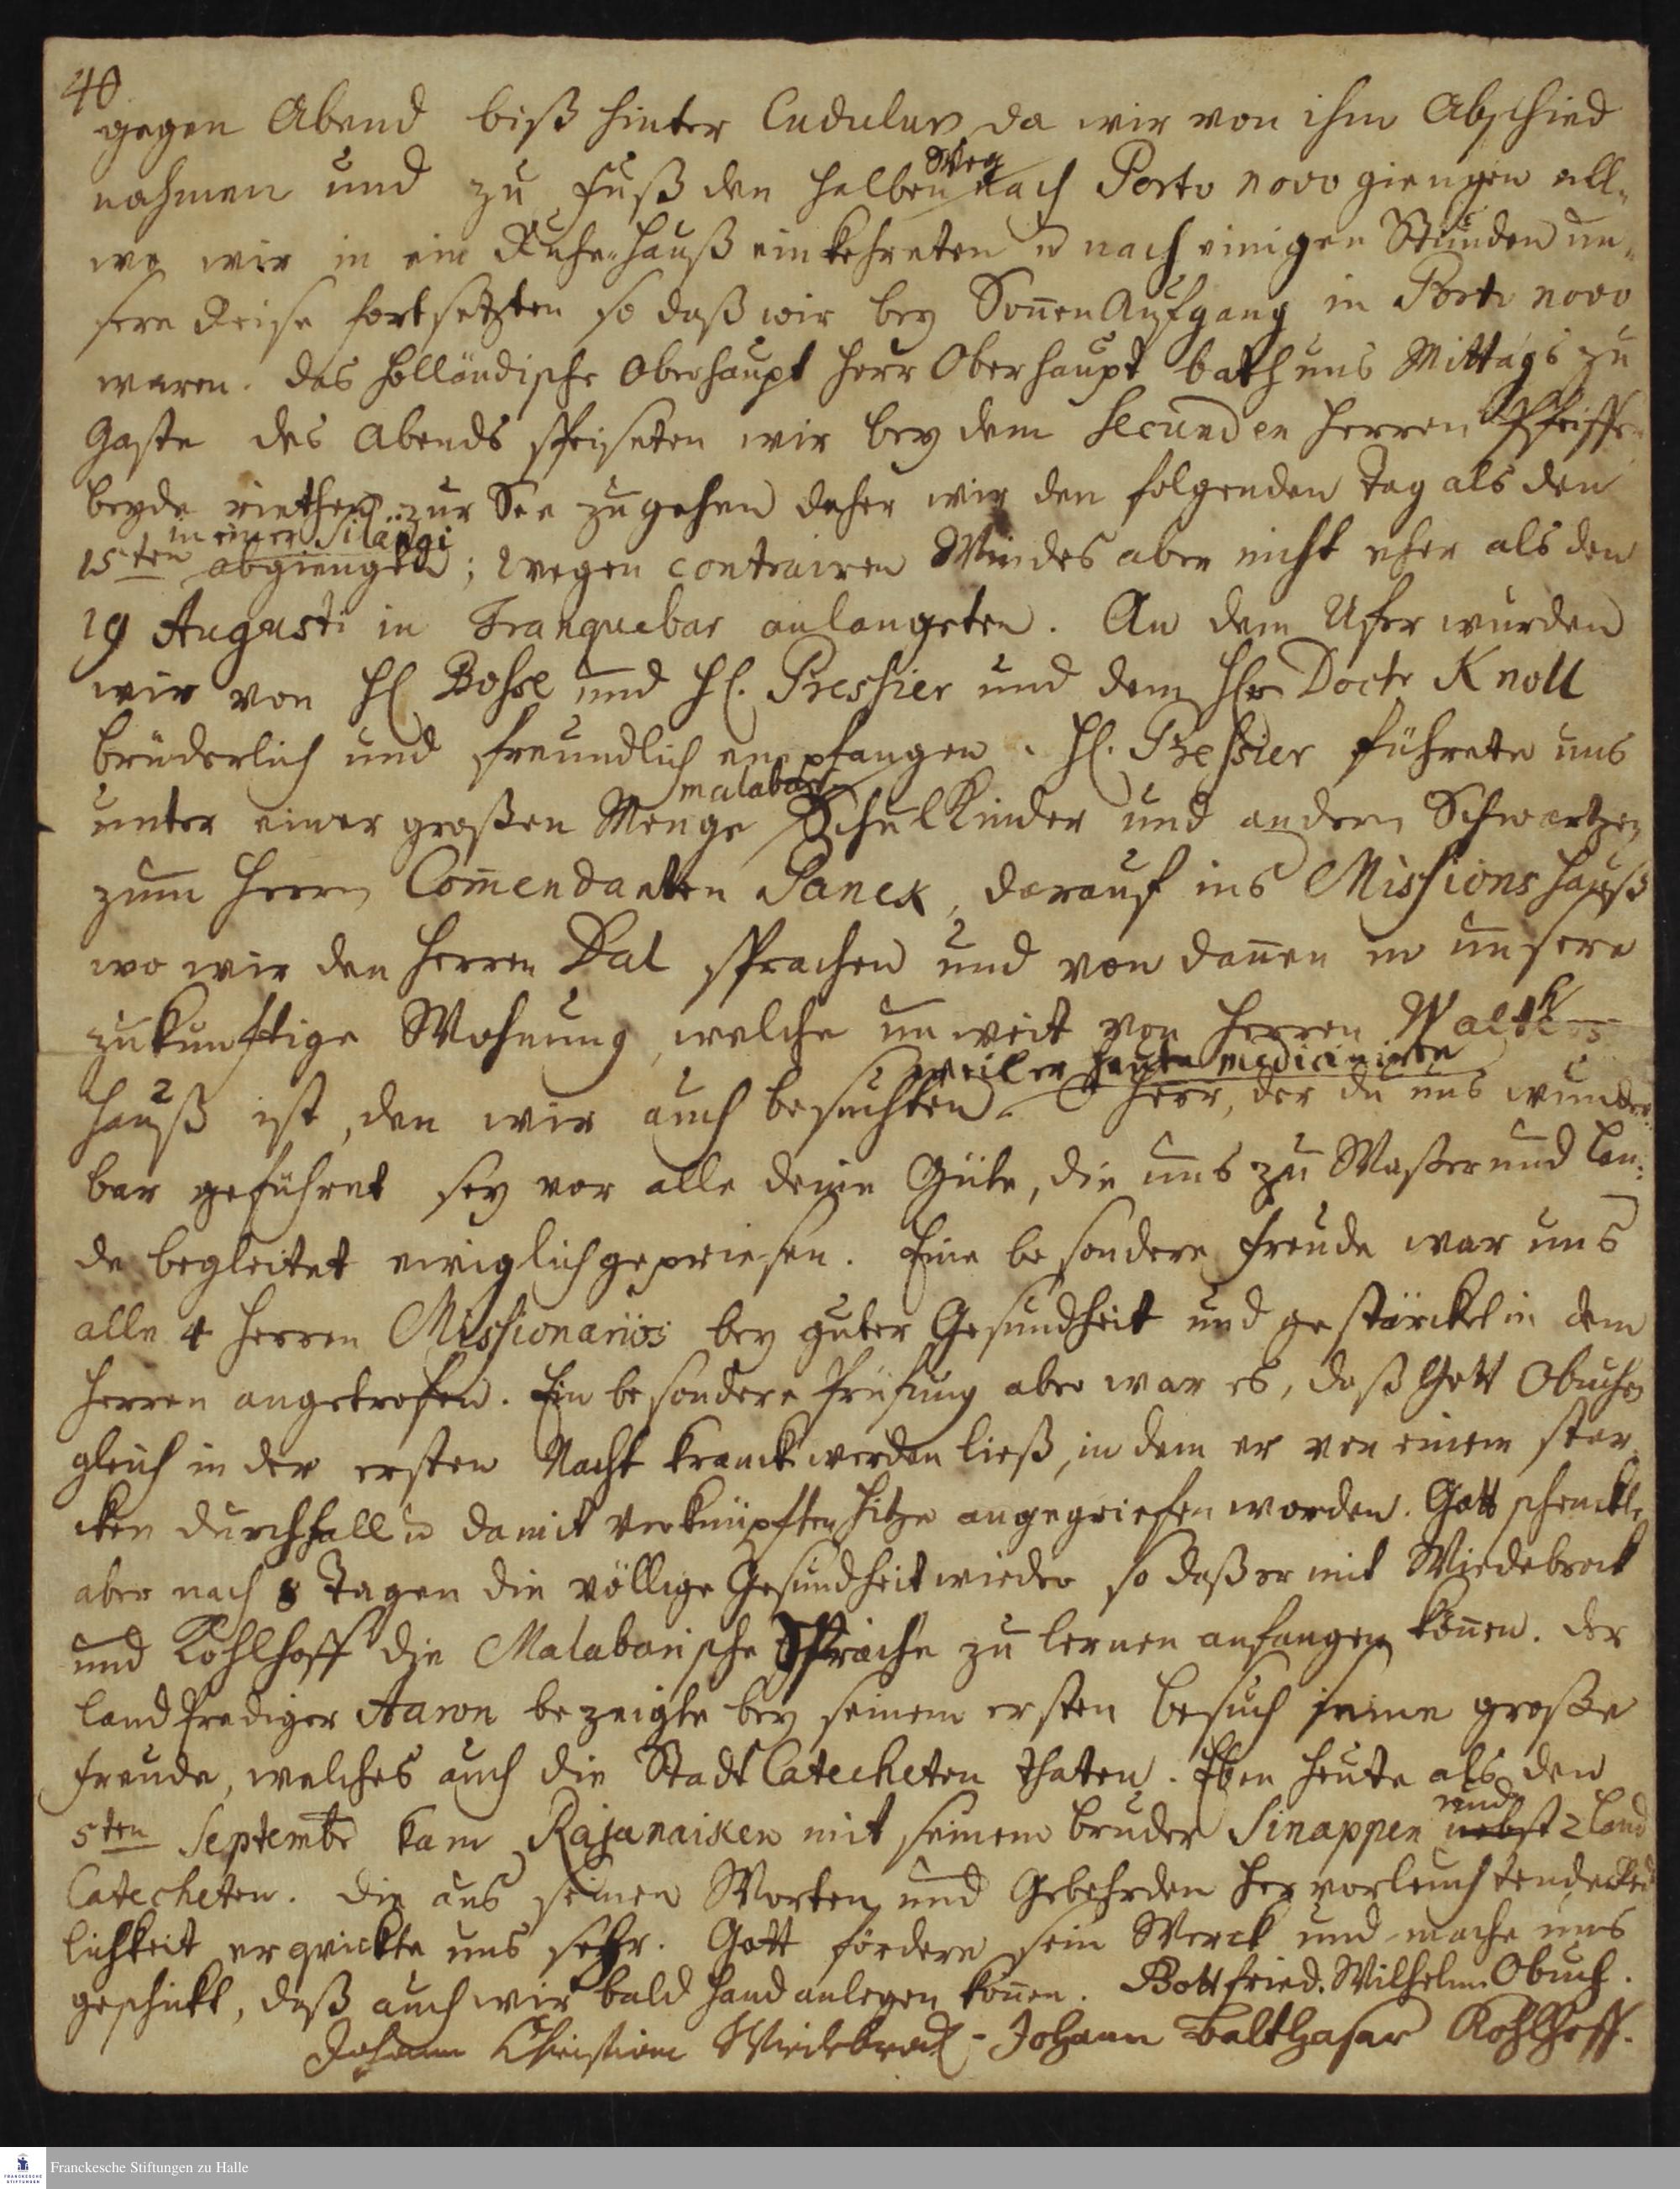 40
gegen Abend biß hinter Cudulur, da wir von ihm Abschied
nahmen und zu Fuß den halben Weg nach Porto novo giengen all-
wo wir in ein Ruhe-Hauß einkehreten u nach einigen Stunden un-
sere Reise fortsetzten so daß wir bey Sonnen Aufgang in Porto novo
waren. das Holländische Oberhaupt Herr Oberhaupt bath uns Mittags zu
Gaste des Abends speiseten wir bey dem Secunden Herren Pfeiffer
beyde riethen zur See zu gehen daher wir den folgenden Tag als den
15ten in einer Silängi abgiengen; wegen contrairen Windes aber nicht eher als den
19 Augusti in Tranquebar anlangeten. An dem Ufer wurden
wir von H. Bosse und H. Pressier und dem Hr Doctr Knoll
brüderlich und freundlich empfangen. H. Pressier führete uns
unter einer großen Menge malabar. SchulKinder und andern Schwartzen
zum Herrn Commendanten Panck, darauf ins Missionshauß
wo wir den Herren Dal sprachen und von dannen in unsere
zukünftige Wohnung, welche un weit von Herren Walthers
Hauß ist, den wir auch besuchten weil er heute medicinirte. Herr, der du uns wunder-
bar geführet sey vor alle deine Güte, die uns zu Waßer und Lan-
de begleitet ewiglich gepriesen. Eine besondere Freude war uns
alle 4 Herren Missionarios bey guter Gesundheit und gestärckt in dem
Herren angetrofen. Ein besondere Prüfung aber war es, daß Gott Obuchen
gleich in der ersten Nacht kranck werden ließ, in dem er von einem star-
cken Durchfall u damit verknüpften Hitze angegriefen worden. Gott schenckte
aber nach 8 Tagen die völlige Gesundheit wieder so daß er mit Wiedebrock
und Kohlhoff die Malabarische Sprache zu lernen anfangen können. Der
Landprediger Aaron bezeigte bey seinem ersten Besuch seine große
Freude, welches auch die Stadt Catecheten thaten. Eben heute als den
5ten Septembr kam Rajanaiken mit seinem Bruder Sinappen nebst und 2 Land
Catecheten. Die aus seinen Worten und Gebehrden hervorleuchtende Red
lichkeit erquickte uns sehr. Gott fördere sein Werck und mache uns
geschickt, daß auch wir bald Hand anlegen können. Gottfried. Wilhelm. Obuch.
Johann Christian Wiedebrock - Johann Balthasar Kohlhoff.
Franckesche Stiftungen zu Halle